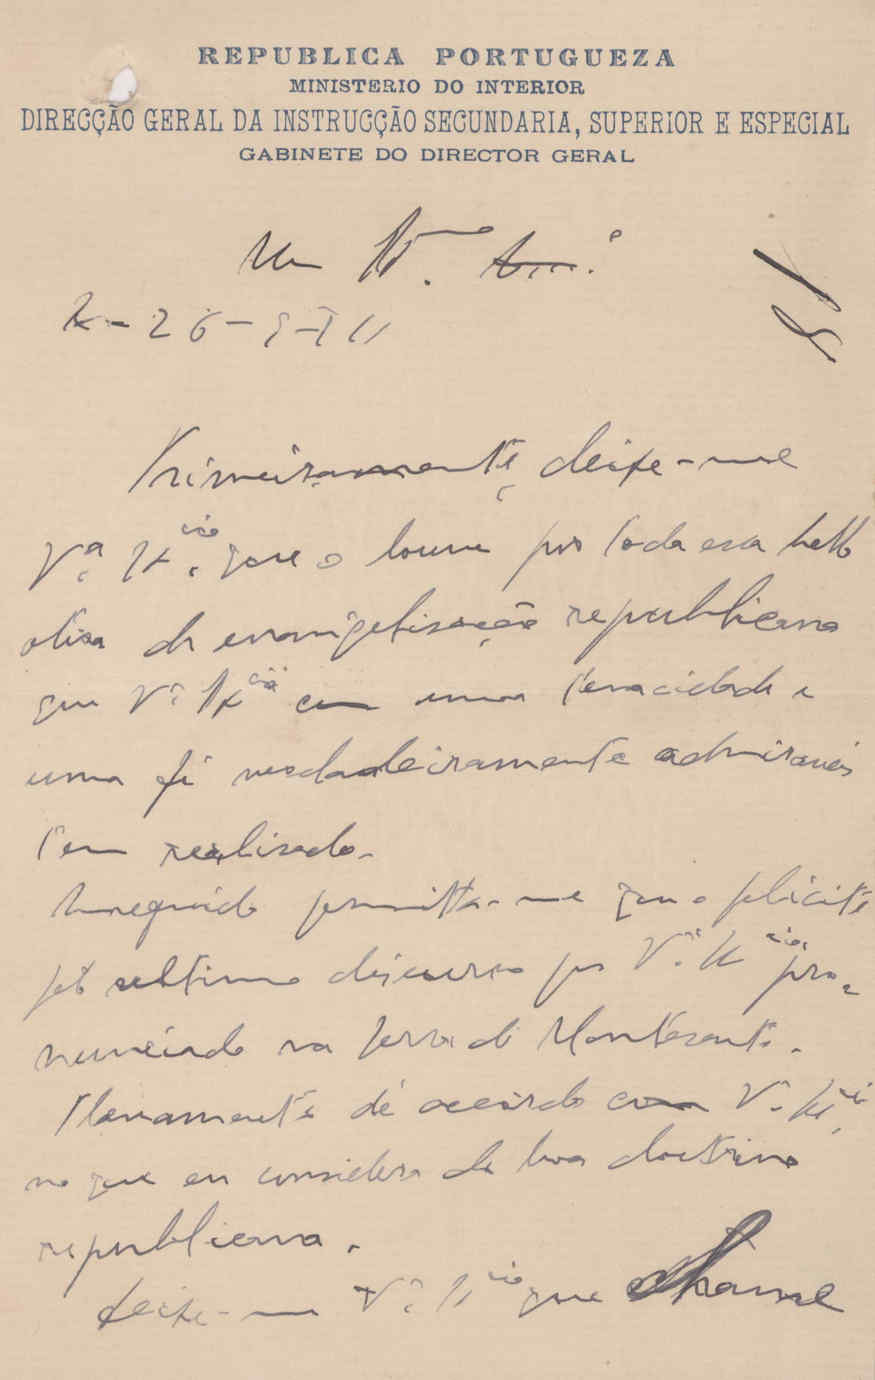 REPUBLICA PORTUGUEZA
MINISTERIO DO INTERIOR
DIRECÇÃO GERAL DA INSTRUCÇÃO SECUNDARIA, SUPERIOR E ESPECIAL
GABINETE DO DIRECTOR GERAL
26
Primeiramente, deixe-me
V.ª Ex.cia que o louve por toda essa bella
obra de evangelisação republicana
que V.ª Ex.cia com uma tenacidade e
uma fé verdadeiramente admiraveis
tem realisado.
permitta-me que o felicite
pelo ultimo discurso por V.ª Ex.cia pro-
nunciado na terra de
Plenamente de accordo com V.ª Ex.cia
no que eu considero de boa doutrina
republicana.
Deixe-me V.ª Ex.cia que chame